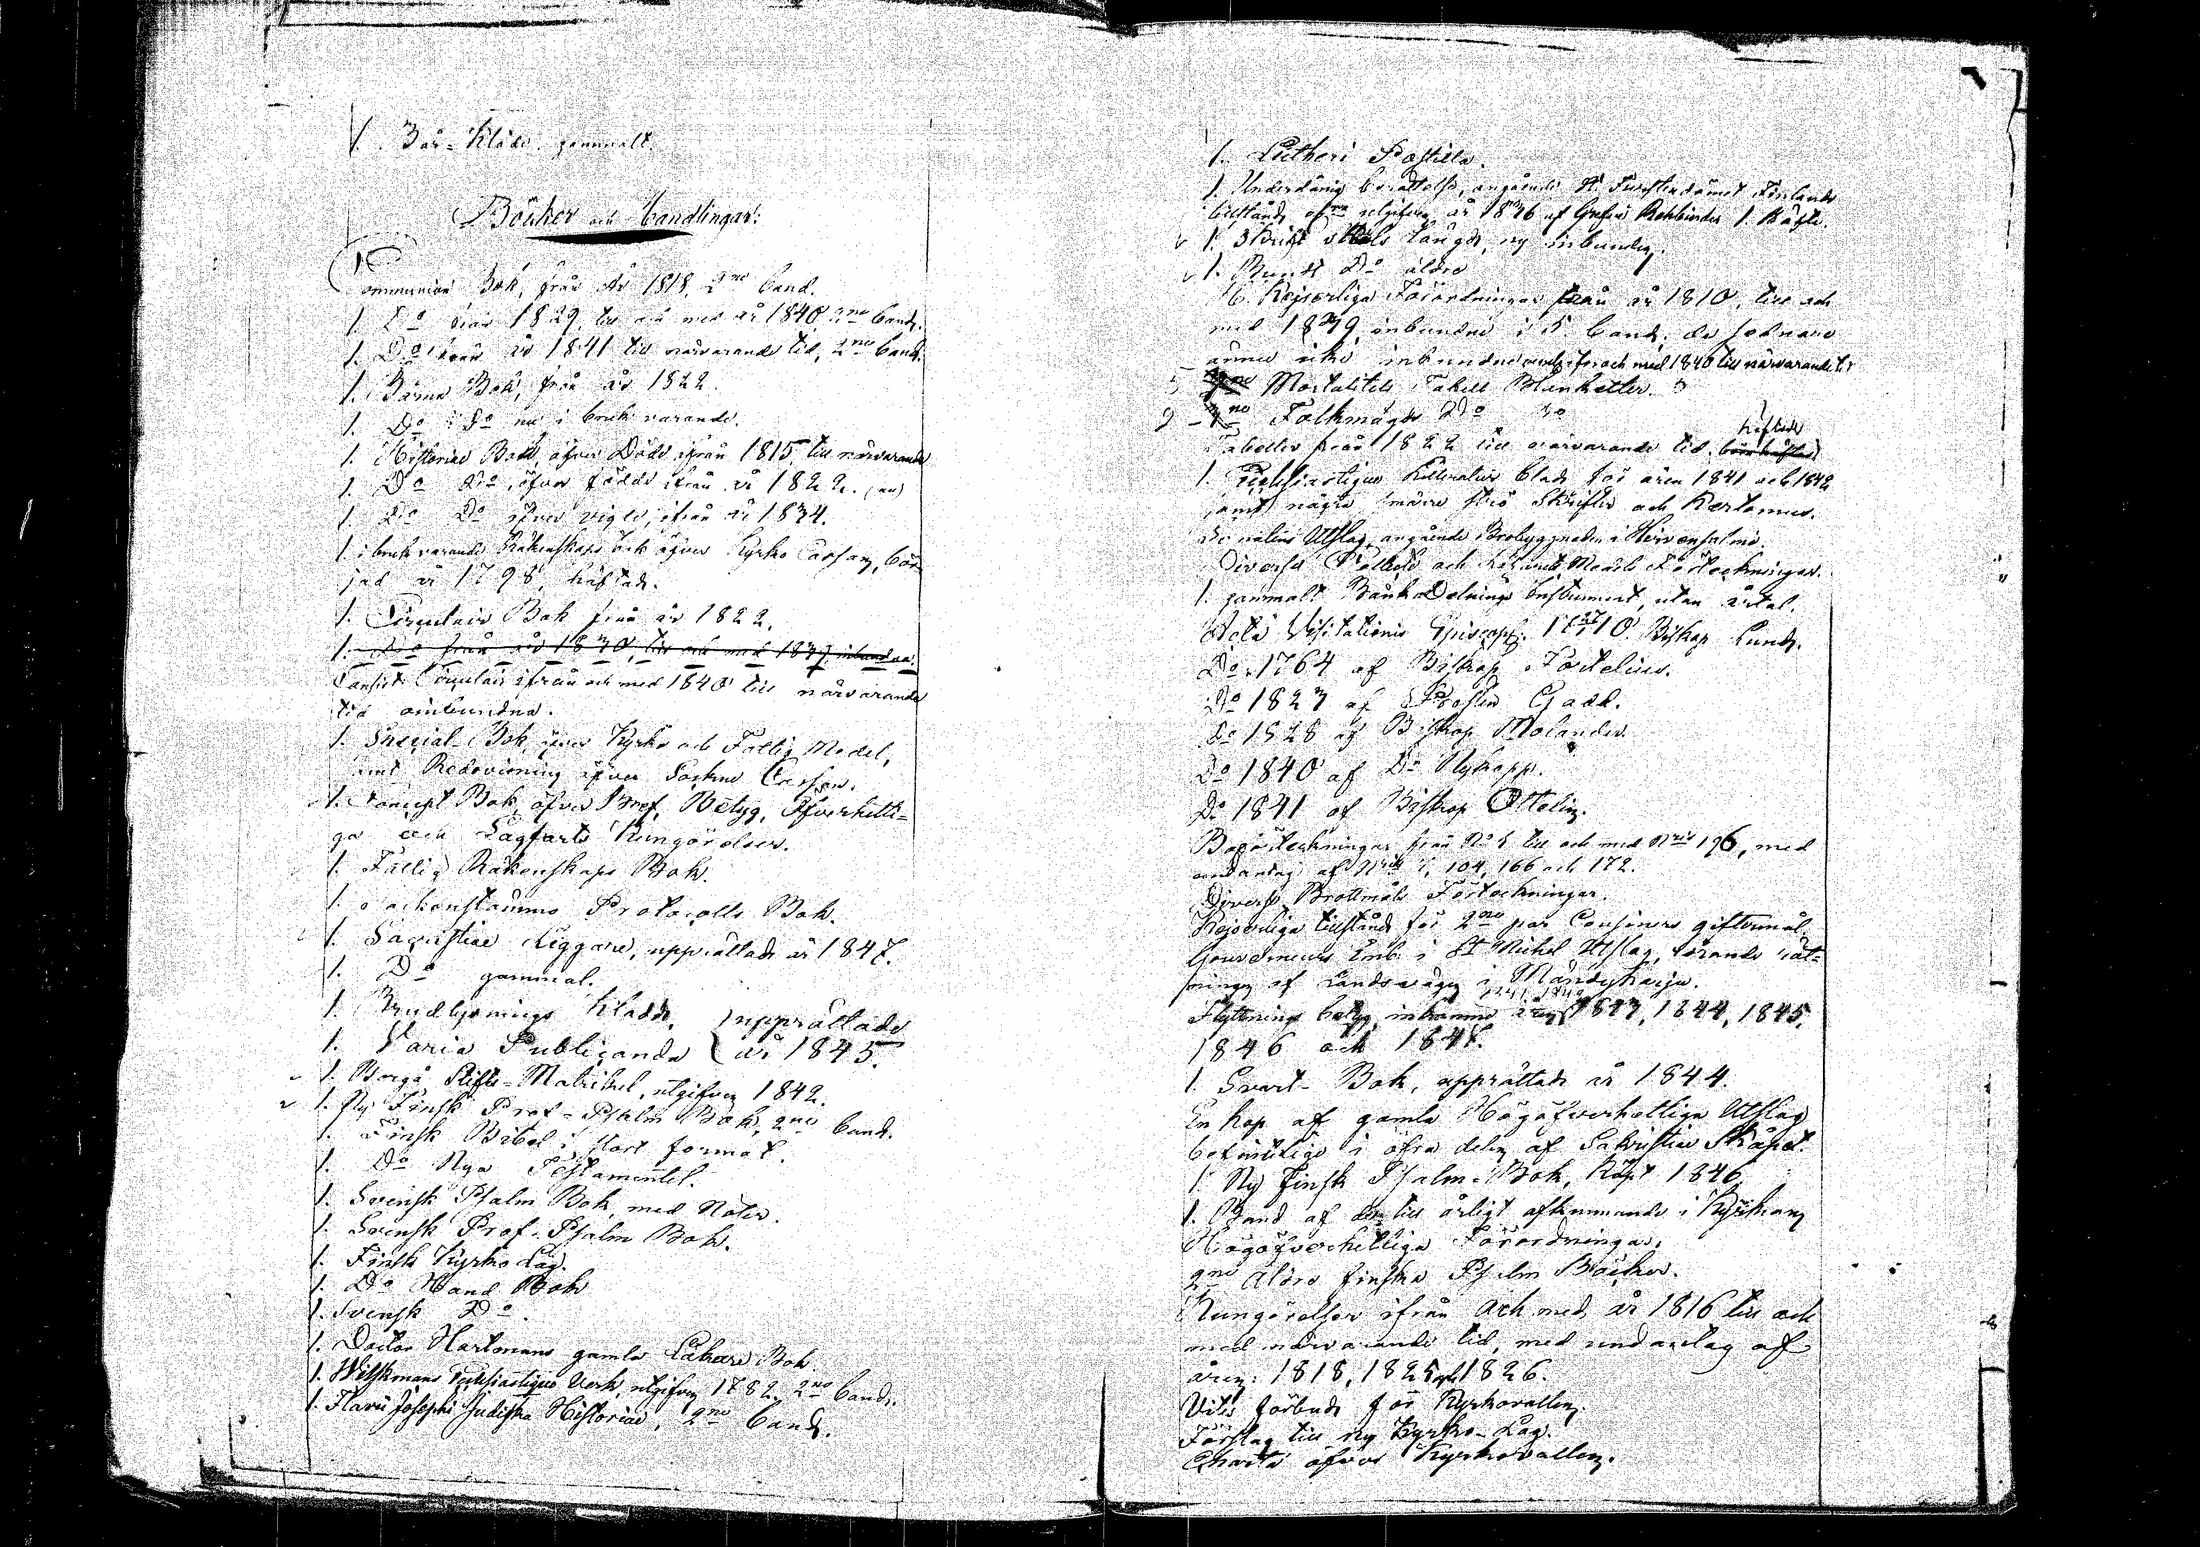 1. Bår-Kläde, gammalt.
Böcker och Handlingar:
Communion Bok, från År 1818, 2ne band.
1. Do från 1829, till och med år 1840, 2ne band.
1. Do från år 1841 till närvarande tid, 2ne band.
1. Barna Bok, från år 1822.
1. Do Do nu i bruk varande.
1. Historiae Bok öfver Döde ifrån 1815 till närvarande
1. Do Do öfver födde ifrån år 1822.
1. Do Do öfver vigde, ifrån år 1834.
1. i bruk varande Räkenskaps bok öfver Kyrko Cassan, bör-
jad år 1798, häftad.
1. Circulair Bok från år 1822.
1. Do från år 1830, till och med 1839 inbundna.
Consist. Circulair ifrån och med 1840 till närvarande
tid oinbundna.
1. Special-Bok öfver Kyrko och Fattig Medel,
samt Redovisning öfver Sockne Cassan.
1. Concept Bok öfver Bref, Betyg, Öfverhetli-
ga och Lagfarts Kungörelser.
1. Fattig Räkenskaps Bok.
1. Sockenstämmo Protocolls Bok.
1. Sacristiae Liggare, upprättad år 1847.
1. Do gammal.
1. Brudlysnings Kladd, } upprättade
1. Varia Publicanda } år 1845.
1. Borgå Stifts-Matrikel, utgifven 1842.
1. Ny Finsk Prof-Psalm Bok, 2ne band.
1. Finsk Bibel i stort format.
1. Do Nya Testamentet.
1. Svensk Psalm Bok, med Noter.
1. Svensk Prof-Psalm Bok.
1. Finsk Kyrko Lag.
1. Do Hand Bok
1. Svensk Do.
1. Doctor Hartmans gamla Läkare Bok.
1. Wilskmans Ecclesiastique Verk, utgifven 1782, 2ne band.
1. Flavii Josephi Judiska Historiae, 2ne band.
1. Lutheri Postilla.
1. Underdånig berättelse, angående St. Furstendömet Finlands
tillstånd, utgifven år 1826 af Grefve Rehbinder 1. Häfte.
1. Skrift längd, ny inbunden.
1. Bunt Do äldre
Kejserliga Förordningar från år 1810, till och
med 1839, inbundne i 5 band; de sednare
ännu icke inbundne ifrån och med 1840 till närvarande tid
5 Mortalitets Tabell Blanketter.
2 Folkmängds Do Do
häftade
Tabeller från 1822 till närvarande tid,
1. Ecclesiastique Litteratur blad för åren 1841 och 1842
samt några smärre strö Skrifter och Kartonner.
Utslag, angående Brobyggnaden i Hirvensalmi.
Diverse och Förteckningar.
1. gammalt Bänka Delnings Instrument, utan årtal.
Acta Visitationis Episcop. 1710. Biskop Lund.
Do. 1764 af Biskop Fortelius.
Do 1827 af Prosten Gadd.
Do 1828 af Biskop Molander.
Do 1840 af Do Nykopp.
Do 1841 af Biskop Ottelin.
Boförteckningar från No 1 till och med Nris 196, med
undantag af 104, 166 och 172.
Diverse Brottmåls Förteckningar.
Kejserliga tillstånd för 2ne par Cousiners giftermål.
Gouverneurs Emb. i St Michel Utslag, rörande rät-
ningen af Landsvägen i Mändyharju.
1841, 1842
Flyttnings betyg, inkomne åren 1843, 1844, 1845,
1846 och 1847.
1. Svart-Bok, upprättad år 1844.
En hop af gamla Högöfverhetliga Utslag
befintliga i öfra delen af Sakristie Skåpet.
1. Ny Finsk Psalm-Bok, köpt 1846
1. Band af de till årligt afkunnande i Kyrkan
Högöfverhetliga Förordningar.
2ne äldre finska Psalm Böcker.
Kungörelser ifrån och med år 1816 till och
med närvarande tid, med undantag af
åren: 1818, 1825 och 1826.
Vites förbud för Kyrkovallen.
Förslag till ny Kyrko-Lag.
Charta öfver Kyrkovallen.